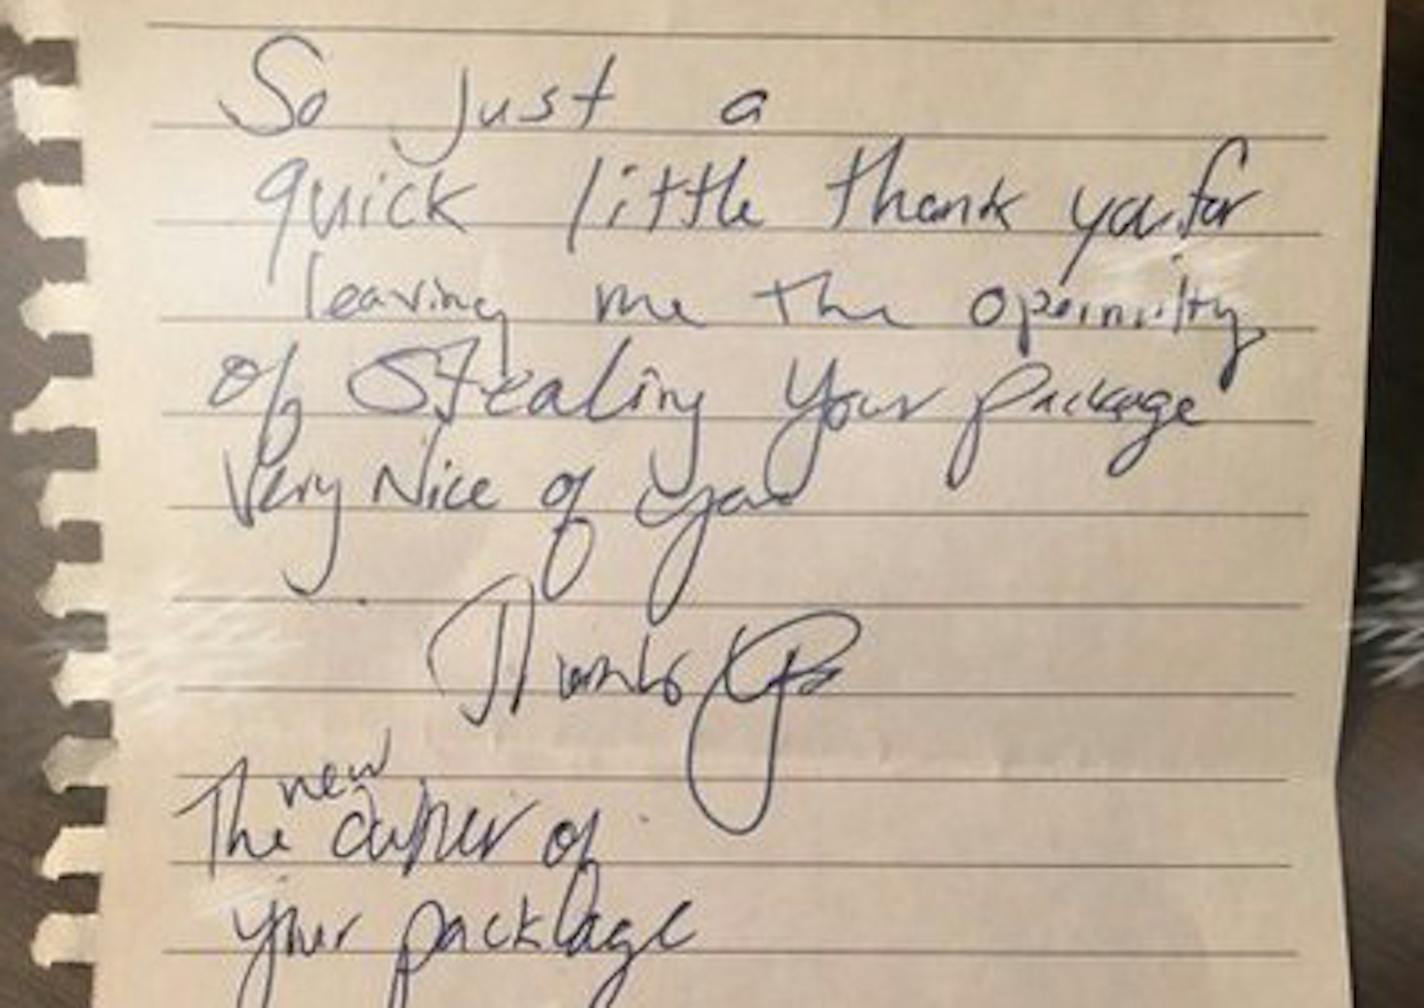 So just a
quick little thank you for
leaving me the
of Stealing your package
Very Nice of you
Thanks
new
The owner of
your packlage